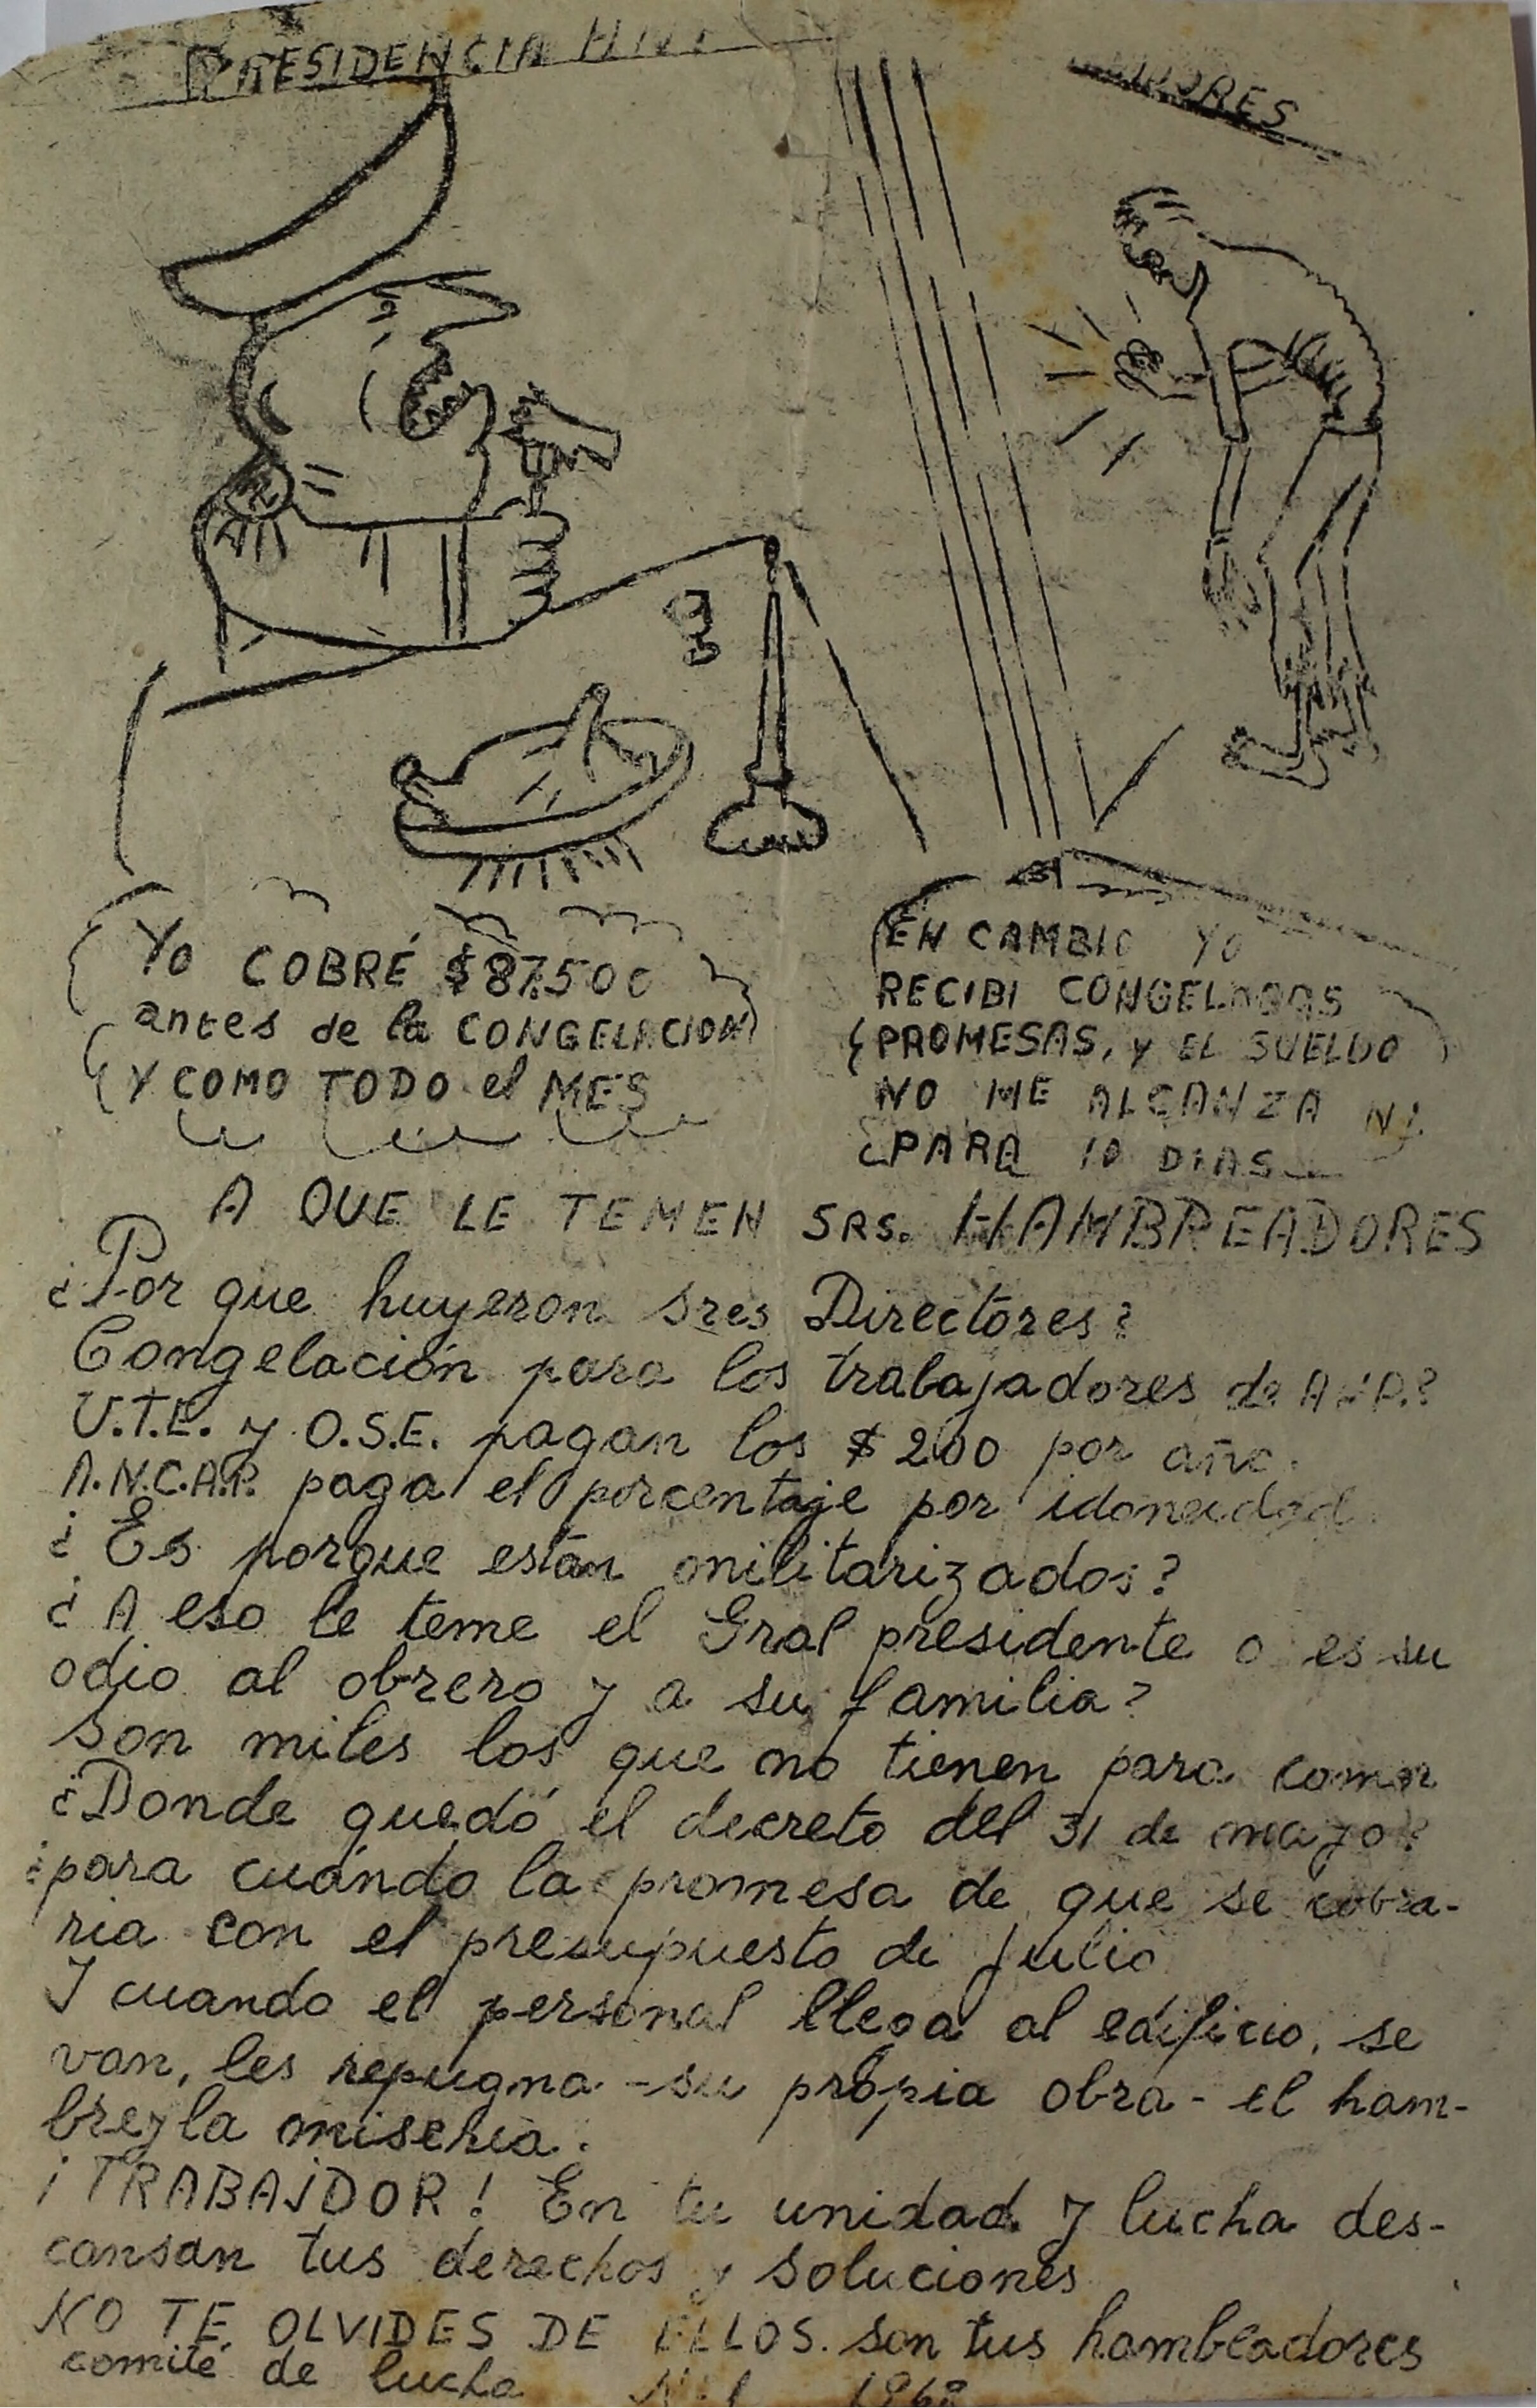 PRESIDENCIA
YO COBRÉ $87.500
antes de la CONGELACION
Y COMO TODO el MES
EN CAMBIO YO
RECIBI CONGELADAS
PROMESAS, Y EL SUELDO
NO ME ALCANZA NI
PARA 10 DIAS
A QUE LE TEMEN SRS. HAMBREADORES
¿Por que huyeron sres Directores?
Congelación para los trabajadores de A.N.P.?
U.T.E. y O.S.E. pagan los $200 por año.
A.N.C.A.P. paga el porcentaje por idoneidad
¿Es porque están militarizados?
¿A eso le teme el Gral presidente o es su
odio al obrero y a su familia?
Son miles los que no tienen para comer
¿Donde quedó el decreto del 31 de mayo?
¿para cuándo la promesa de que se cobra-
ria con el presupuesto de Julio
Y cuando el personal llega al edificio, se
van, les repugna - su propia obra - el ham-
bre y la miseria.
¡TRABAJDOR! En tu unidad y lucha des-
cansan tus derechos y soluciones
NO TE OLVIDES DE ELLOS. son tus hambeadores
comité de lucha 1968